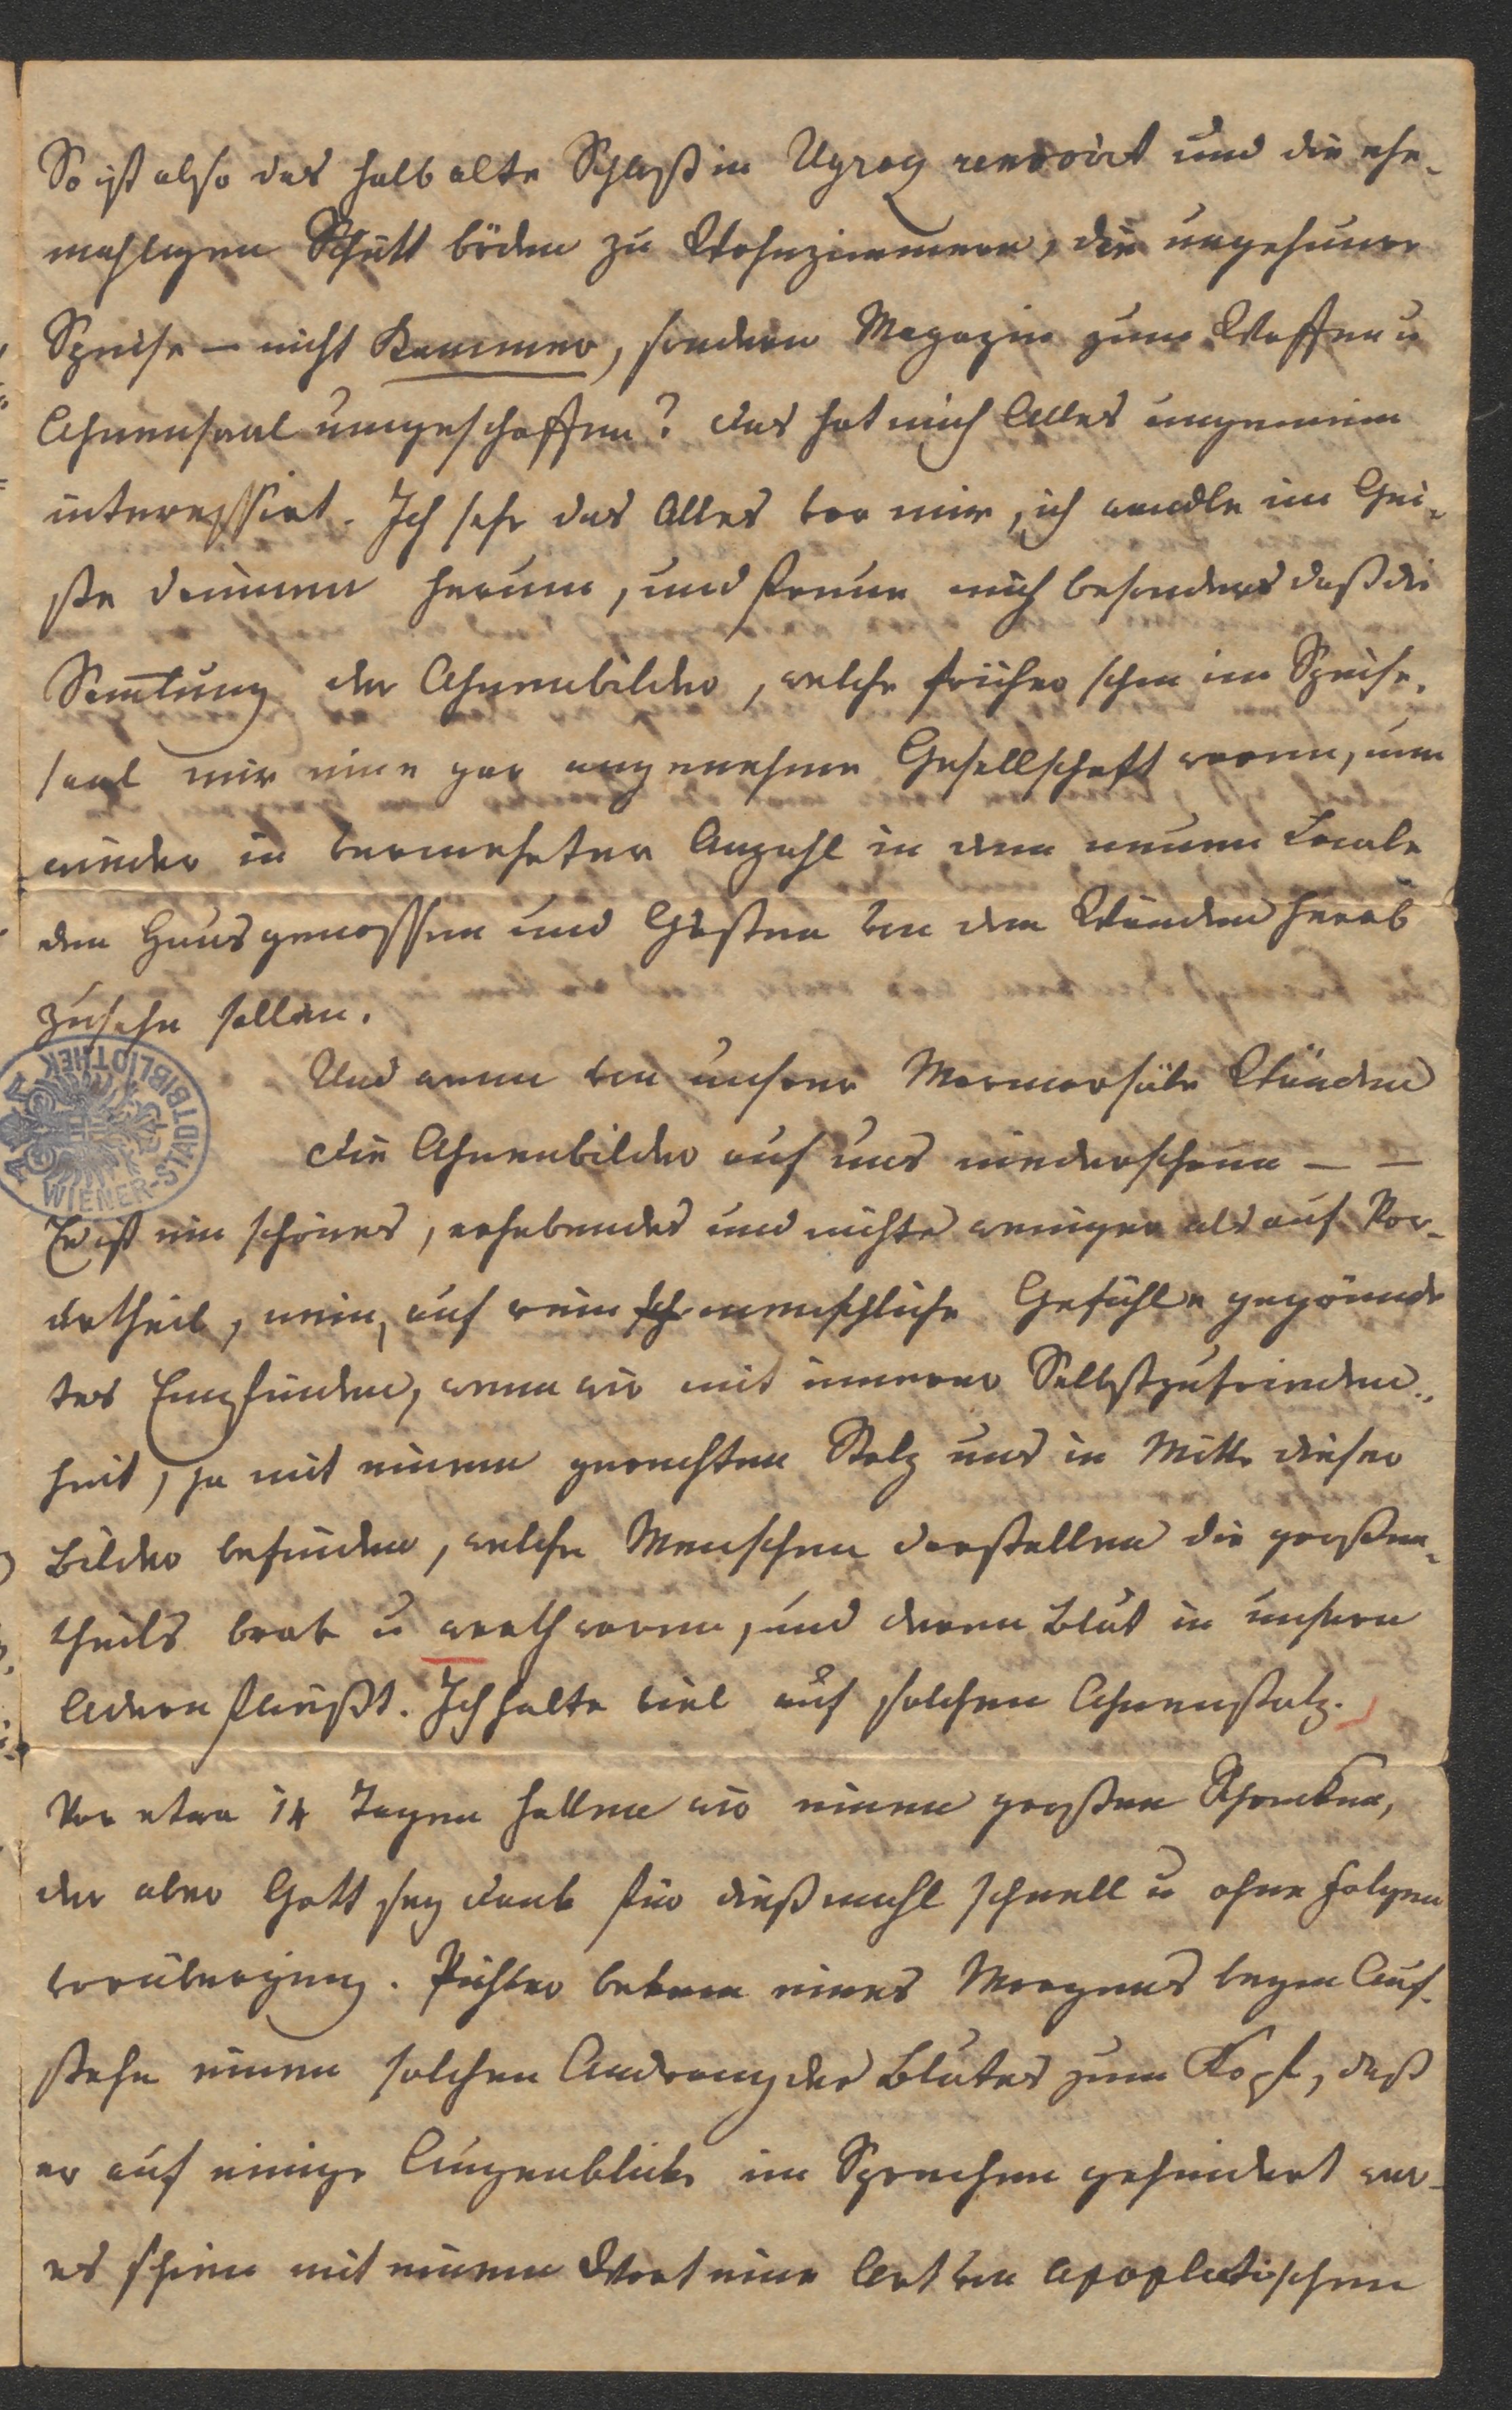 So ist also das halb alte Schloß in Ugrog renovirt und die ehe-
mahligen Schütt böden zu Wohnzimmern, die ungeheure
Speise - nicht Kammer, sondern Magazin zum Waffen u
Ahnensaal umgeschaffen? Das hat mich Alles ungemein
interessirt. Ich sehe das Alles vor mir, ich wandle im Gei-
ste drinnen herum, und freue mich besonders daß die
Sam̄lung der Ahnenbilder, welche früher schon im Speise-
saal mir eine gar angenehme Gesellschaft waren, nun
wieder in vermehrter Anzahl in dem neuen Locale
den Hausgenossen und Gästen von den Wänden herab
zusehn sollen.
Und wenn von unsrer Marmorsäle Wänden
die Ahnenbilder auf uns niederschaun - -
Es ist ein schönes, erhebendes und nichts weniger als auf Vor-
urtheil, nein, auf rein sch menschliche Gefühle gegründe
tes Empfinden, wenn wir mit innerer Selbstzufrieden-
heit, ja mit einem gerechten Stolz uns in Mitte dieser
Bilder befinden, welche Menschen darstellen die großen-
theils brav u werth waren, und deren Blut in unsern
Adern fließt. Ich halte viel auf solchen Ahnenstolz.
Vor etwa 14 Tagen hatten wir einen großen Schrecken,
der aber Gott sey Dank für dießmahl schnell u ohne Folgen
vorüberging. Pichler bekam eines Morgens beym Auf-
stehn einen solchen Andrang des Blutes zum Kopf, daß
er auf einige Augenblicke im Sprechen gehindert war-
es schien mit einem Wort eine Art von apoplectischen
WIENER-STADTBIBLIOTHEK